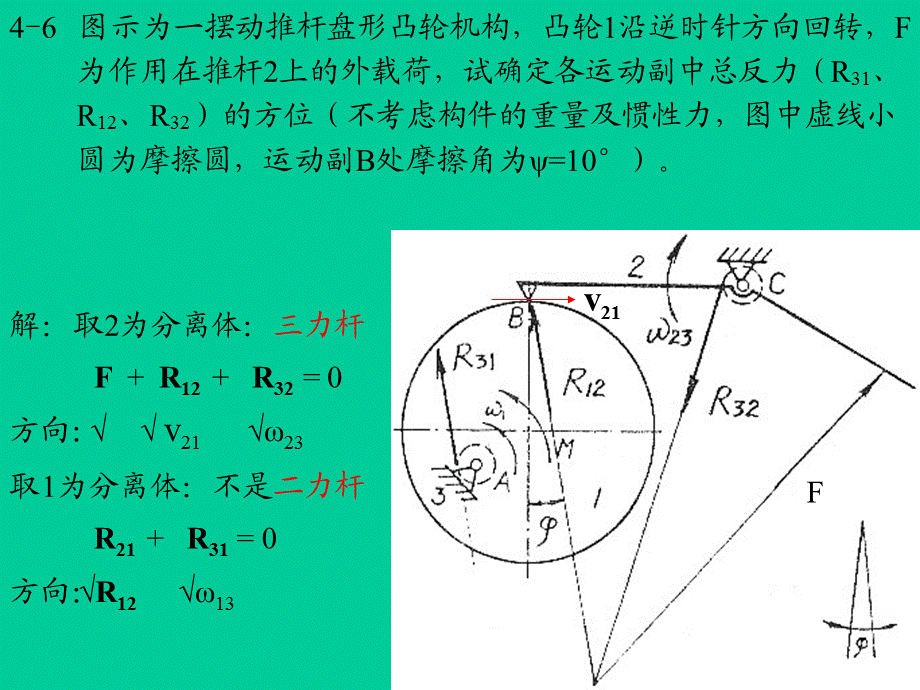 4-6 图示为一摆动推杆盘形凸轮机构，凸轮1沿逆时针方向回转，F
为作用在推杆2上的外载荷，试确定各运动副中总反力（R31、
R12、R32）的方位（不考虑构件的重量及惯性力，图中虚线小
圆为摩擦圆，运动副B处摩擦角为ψ=10°）。
解：取2为分离体：三力杆
F + R12 + R32 = 0
方向：√ √ v21 √ω23
取1为分离体：不是二力杆
R21 + R31 = 0
方向：√R12 √ω13
2
C
v21
B
ω23
R31
R12
R32
ω1
M
A
3
1
φ
F
φ